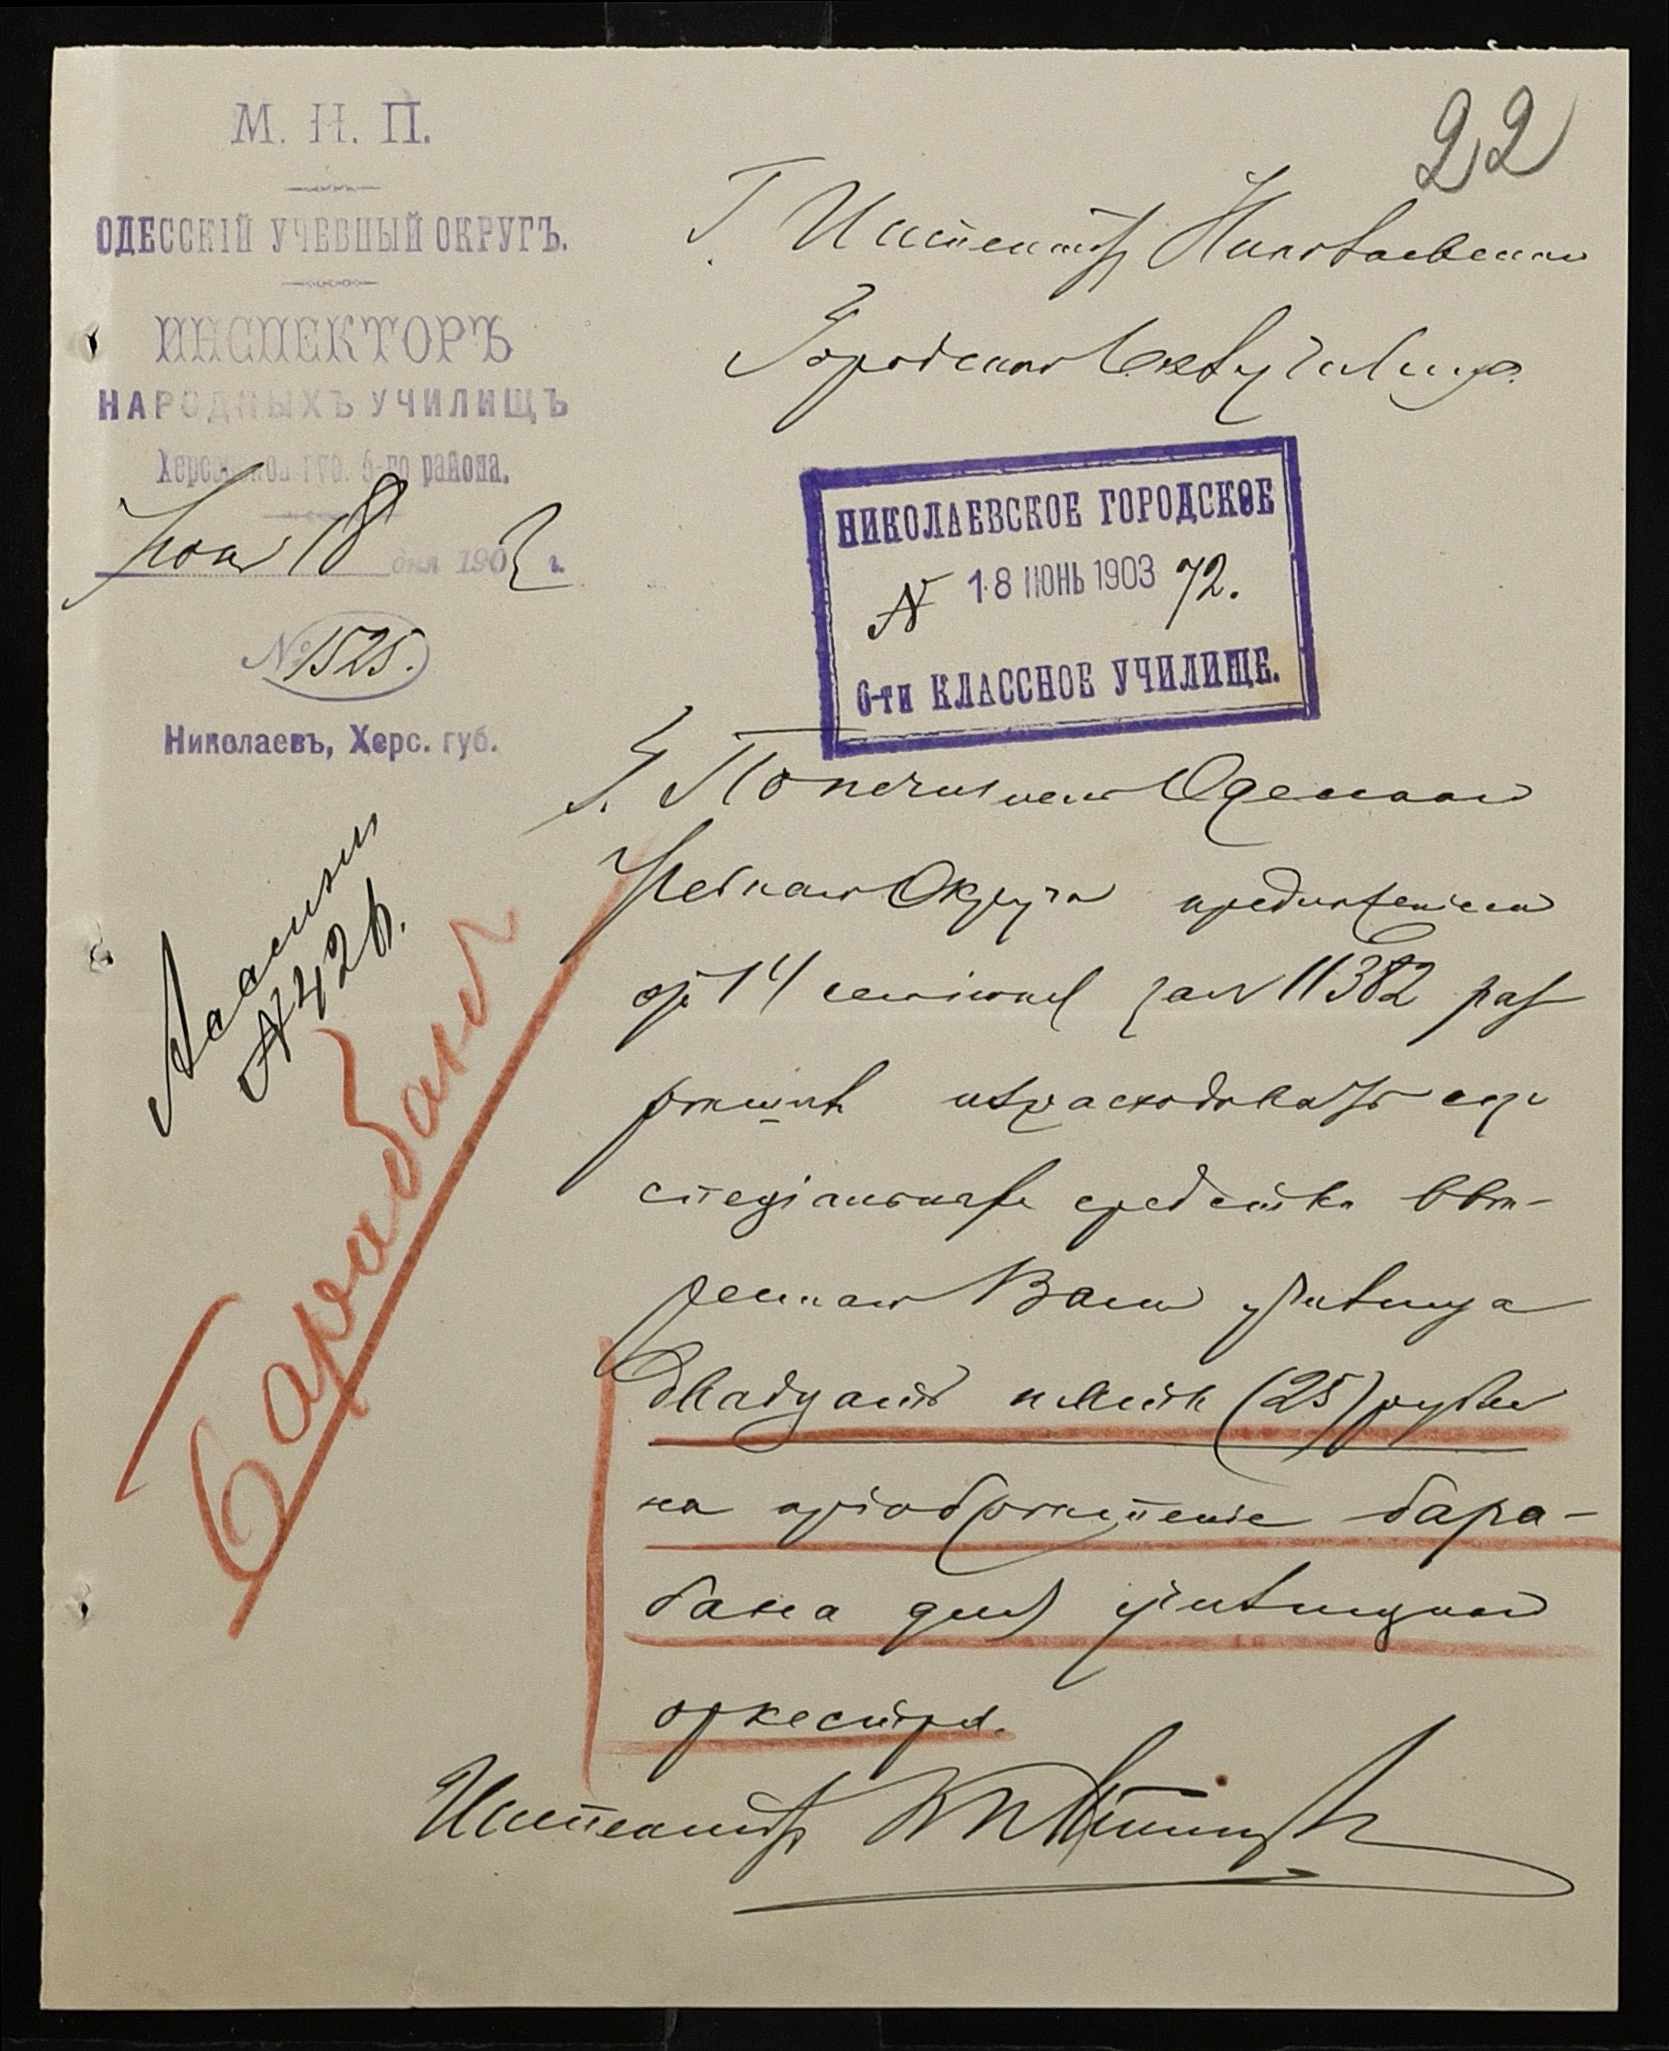 22
М. Н. П.
ОДЕССКІЙ УЧЕБНЫЙ ОКРУГЪ.
ИНСПЕКТОРЪ
НАРОДНЫХЪ УЧИЛИЩЪ
Херсонской губ. 6-го района.
Іюня 18 дня 1903 г.
№ 1525.
Николаевъ, Херс. губ.
Г. Инспектору Николаевскаго
Городского училища
НИКОЛАЕВСКОЕ ГОРОДСКОЕ
№ 18 ІЮНЬ 1903 72.
6-ти КЛАССНОЕ УЧИЛИЩЕ.
Г. Попечитель Одесскаго
Учебнаго Округа предложеніемъ
отъ 14 сего іюня за № 11382 раз
рѣшилъ израсходовать изъ
спеціальныхъ средствъ ввѣ-
реннаго Вамъ училища
двадцать пять (25) рублей
на пріобрѣтеніе бара-
бана для училищнаго
оркестра.
Инспекторъ
№ 426.
Барабанъ